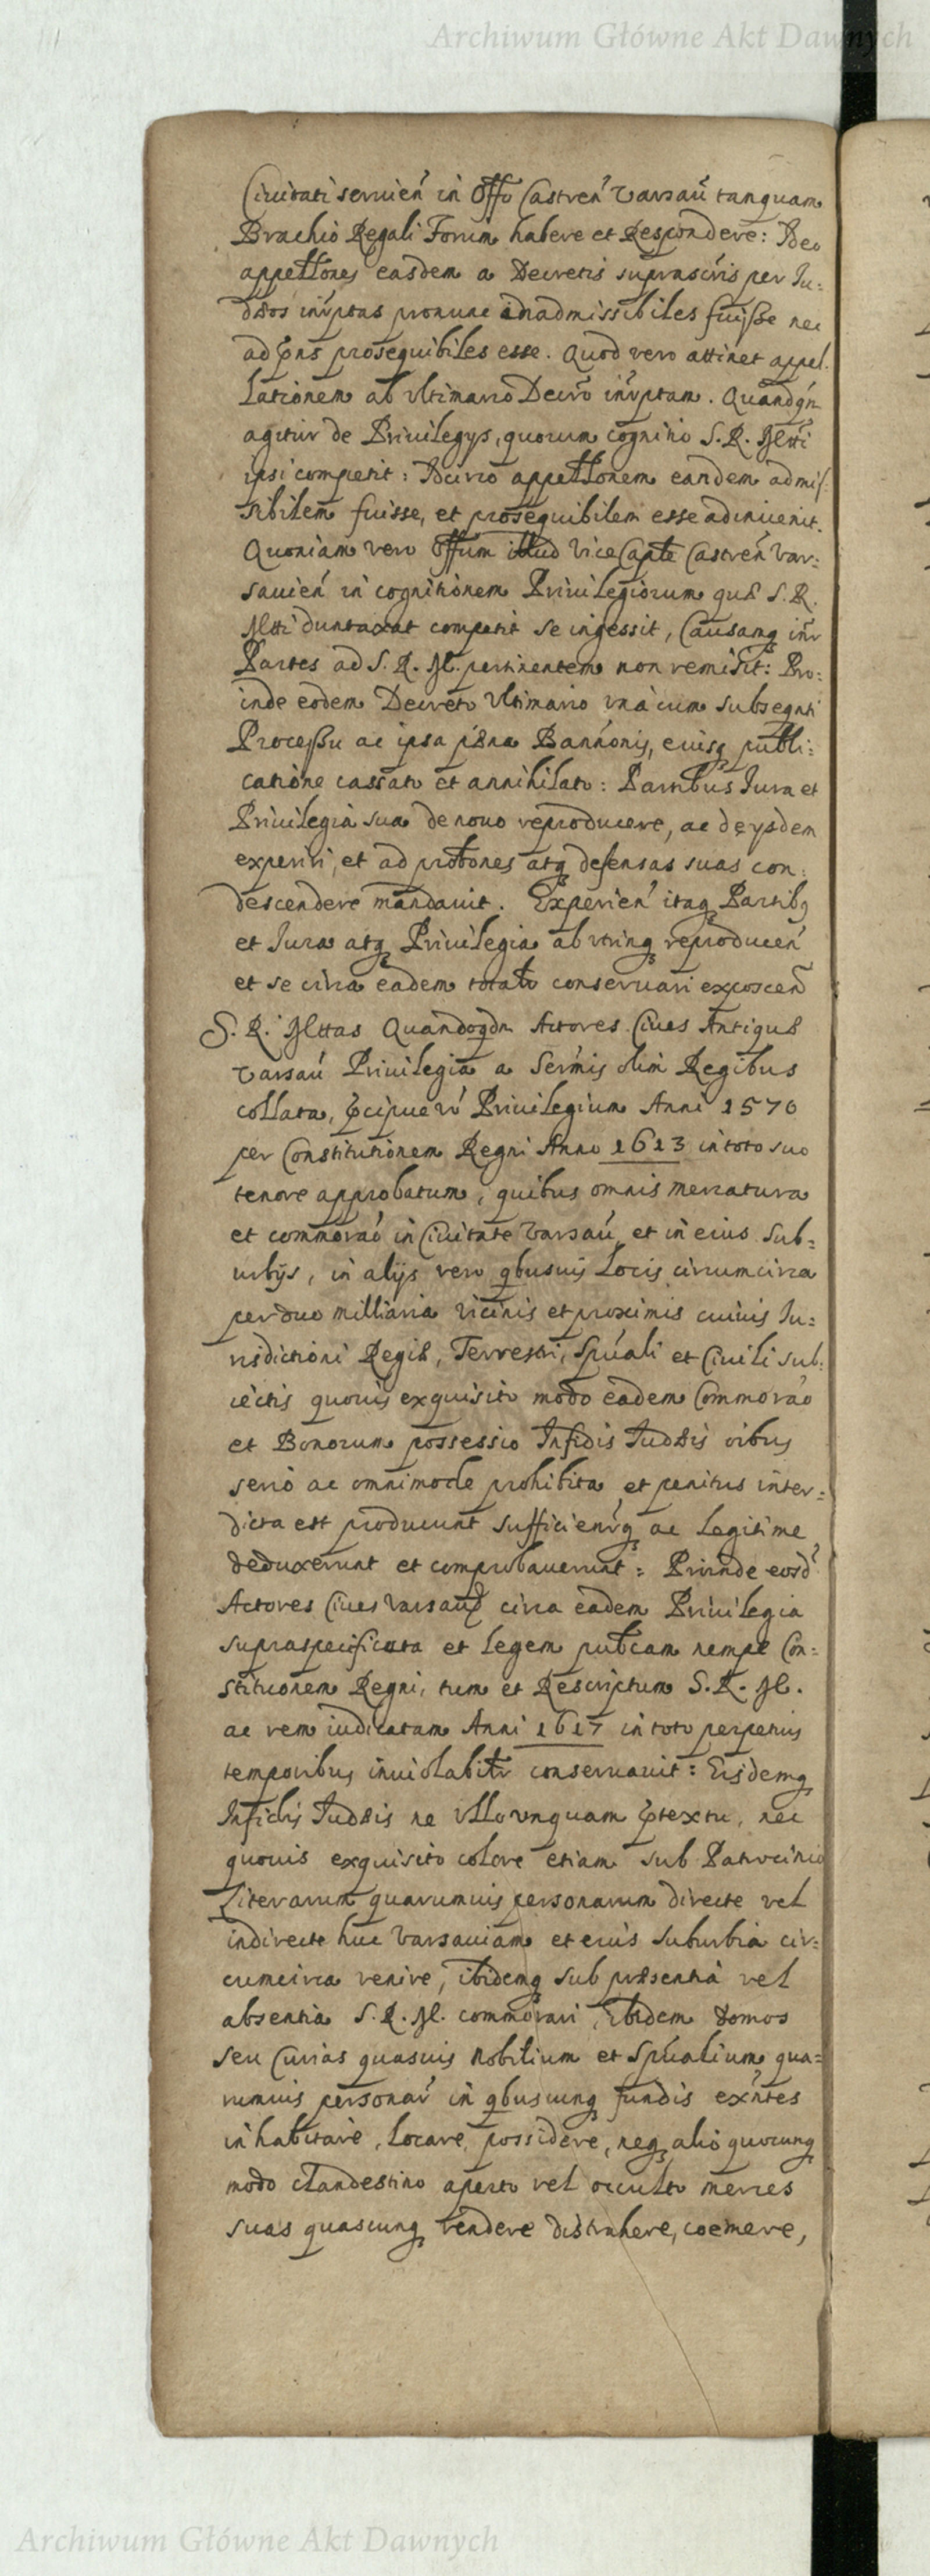 Archiwum Główne Akt Dawnych
Ciuitati seruien̄ in Offo Castren̄ Varsau̅ tanquam
Brachio Regali Forum habere et Respondere: Ideo
appellōnes easdem a Decretis suprascris per Iu:
dæos inrptas pronunc inadmissibiles fuisse nec
ad pn̄s prosequibiles esse. Quod vero attinet appel:
lationem ab Vltimario Decro̅ inrptam. Quandoqn̄
agitur de Priuilegys, quorum cognitio S. R. Mtti
ipsi competit: Idcirco appellōnem eandem admis:
sibilem fuisse, et prosequibilem esse adinuenit.
Quoniam vero Offum illud ViceCaptle Castren̄ Var:
sauien̄ in cognitionem Priuilegiorum quæ S. R.
Mtti duntaxat competit se ingessit, Causamq inr
Partes ad S. R. M. pertinentem non remisit: Pro:
inde eodem Decreto Vltimario vna cum subseqnti
Processu ac ipsa pæna Bannonis, eiusq publi:
catione cassato et annihilato: Partibus Iura et
Priuilegia sua denouo reproducere, ac de ysdem
experiri, et ad probōnes atq defensas suas con:
descendere mandauit. Experien̄ itaq Partibq
et Iura atq Priuilegia ab vtrinq reproducen̄
et se circa eadem totalr conseruari exposcen̄
S. R. Mttas Quandoqdn Actores Ciues Antiquæ
Varsau̅ Priuilegia a Sermis olim Regibus
collata, pcipue vo̅ Priuilegium Anni 1570
per Constitutionem Regni Anno 1613 in toto suo
tenore approbatum, quibus omnis mercatura
et commorao̅ in Ciuitate Varsau̅, et in eius sub:
urbijs, in alijs vero qbusuis Locis circumcirca
per duo milliaria vicinis et proximis cuiuis Iu:
risdictioni Regiæ, Terrestri, Spuali et Ciuili sub:
iectis quouis exquisito modo eadem Commorao̅
et Bonorum possessio Infidis Iudæis oibus
serio ac omnimode prohibita et penitus inter:
dicta est producunt sufficienrq ac Legitime
deduxerunt et comprobauerunt: Proinde eosd̄
Actores Ciues Varsau̅ circa eadem Priuilegia
supraspecificata et Legem publcam nempe Con:
stitutionem Regni, tum et Rescriptum S. R. M.
ac rem iudicatam Anni 1617 in toto perpetuis
temporibus inuiolabilr conseruauit: Eisdemq
Infidis Iudæis ne vllo vnquam ptextu, nec
quouis exquisito colore etiam sub Patrocinio
Literarum quarumuis personarum directe vel
indirecte huc Varsauiam et eius suburbia cir:
cumcirca venire, ibidemq sub præsentia vel
absentia S. R. M. commorari, ibidem domos
seu Curias quasuis Nobilium et Spualium qua:
rumuis personar̄ in qbuscunq fundis exn̄tes
inhabitare, Locare, possidere, neq alio quocunq
modo clandestino aperto vel occulto merces
suas quascunq vendere distrahere, coemere,
Archiwum Główne Akt Dawnych